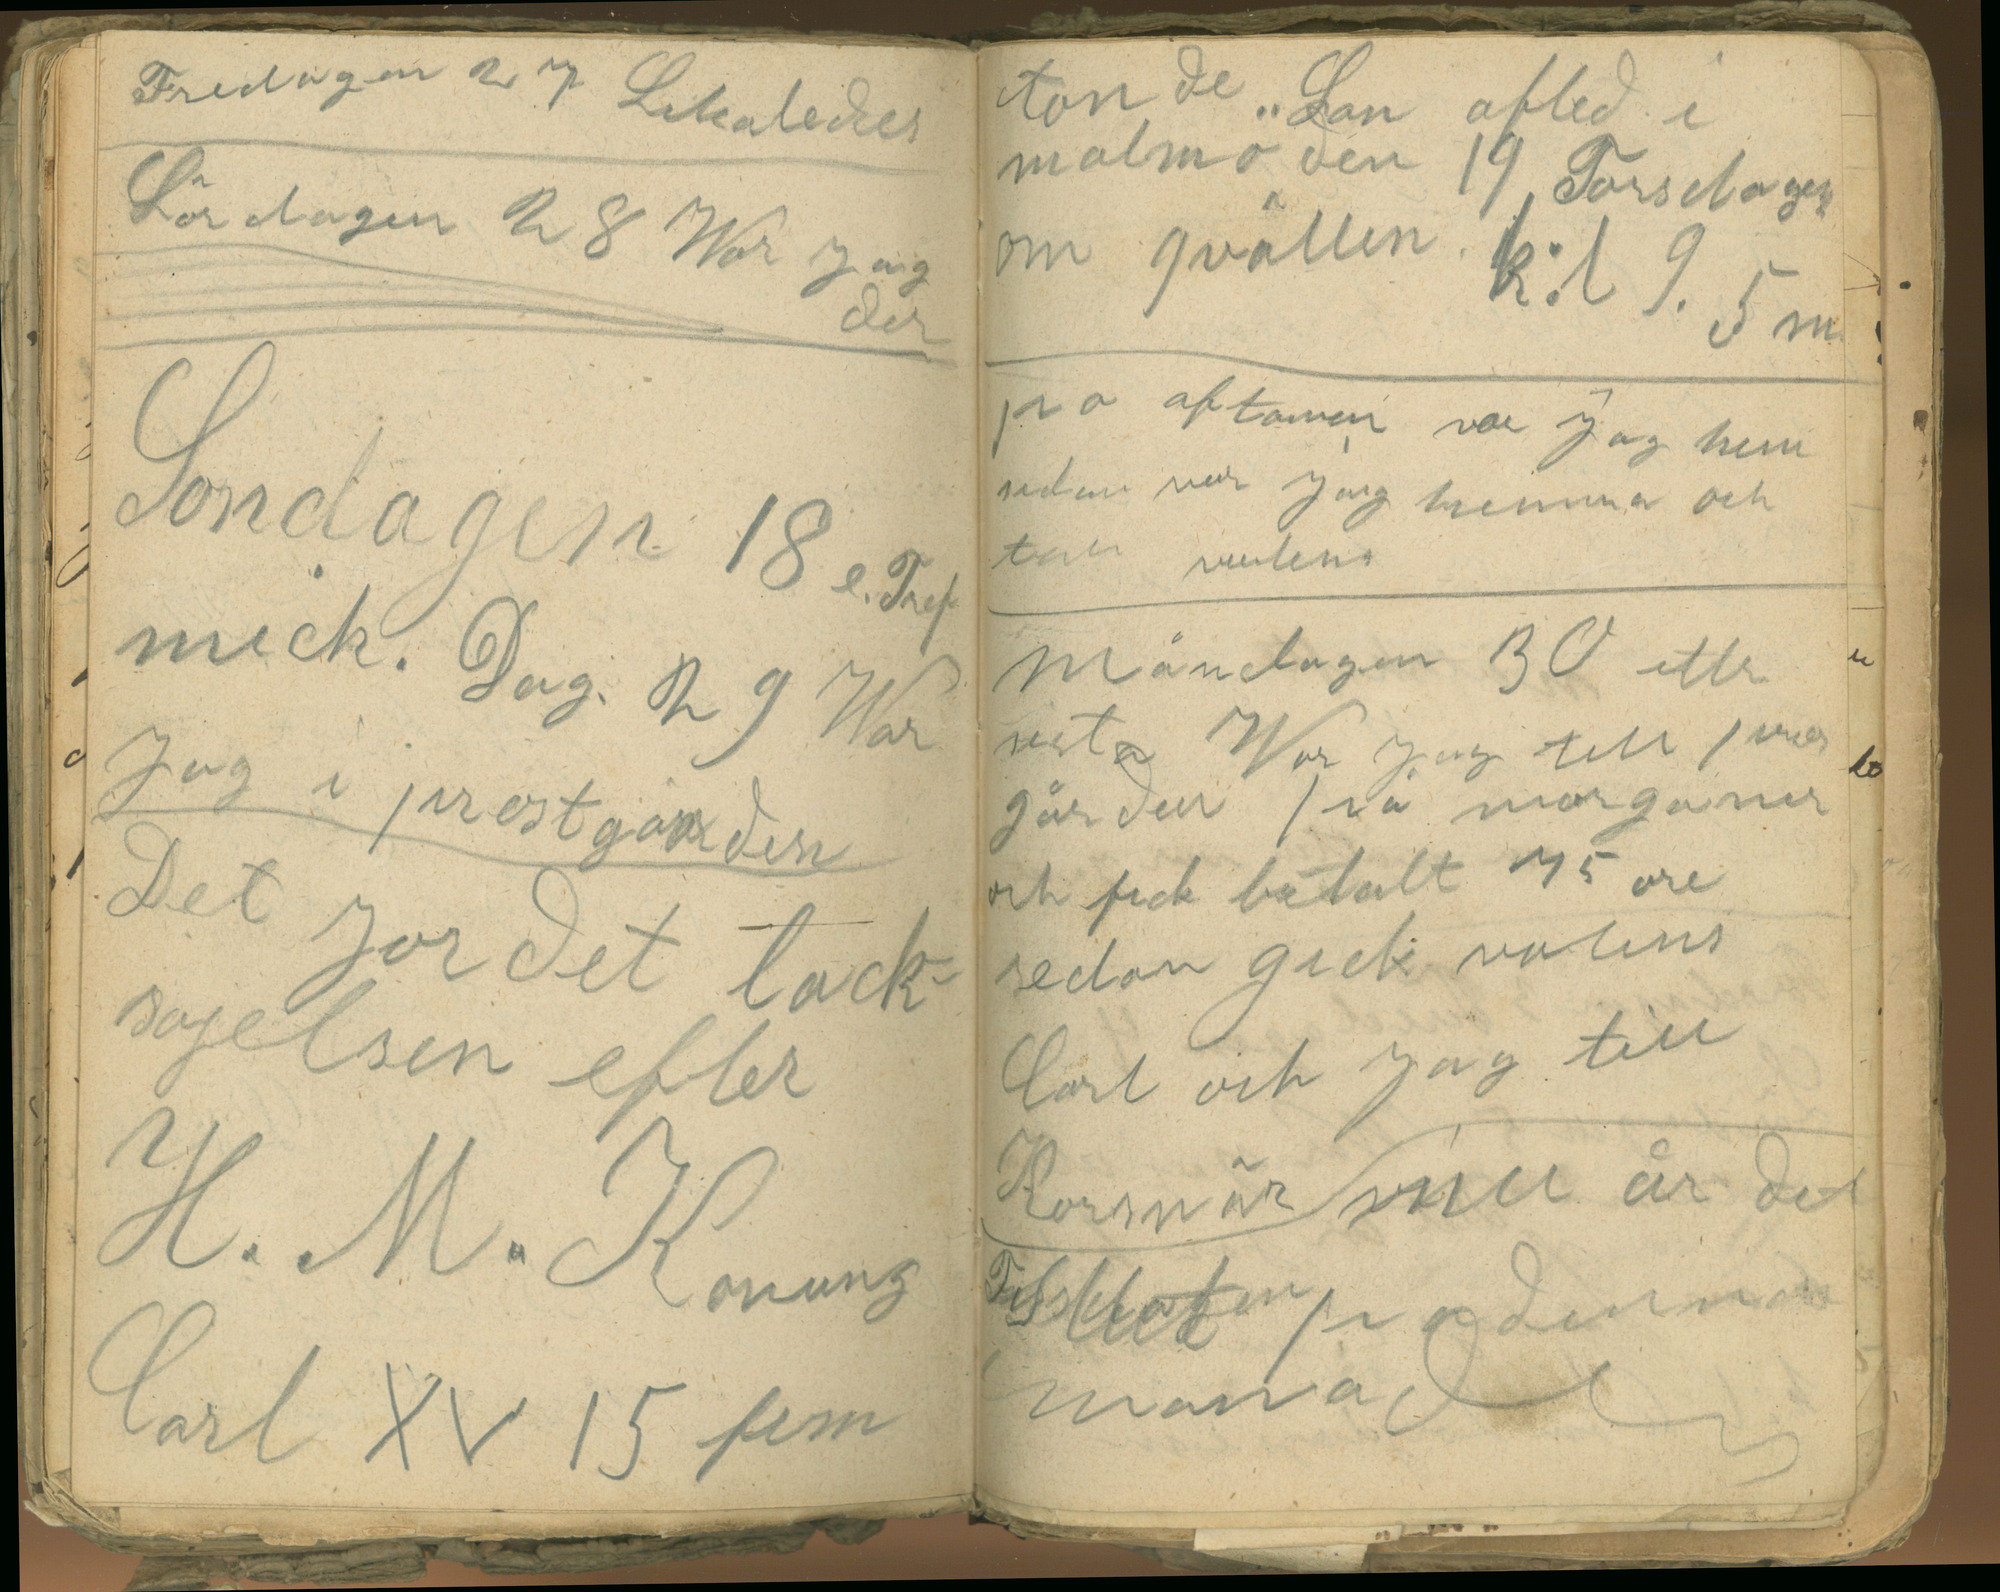 Fredagen 27 Likaledes
Lördagen 28 War Jag
der
Söndagen 18 e. Tref
mick. Dag. 29 War
Jag i prestgården
Det Jordet tack-
sajelsen efter
H. M. Konung
Carl XV 15 fem
tonde. Han afled i
malmö den 19 Torsdagen
om qvällen k:l 9. 5 m
på aftonen var Jag hem
sedan var Jag hemma och
till valens
Måndagen 30 ette
sista War Jag till pres
gården på morgonen
och fick betalt 75 öre
sedan gick valens
Carl och Jag till
Korsnär nu är det
slut på denna
månad